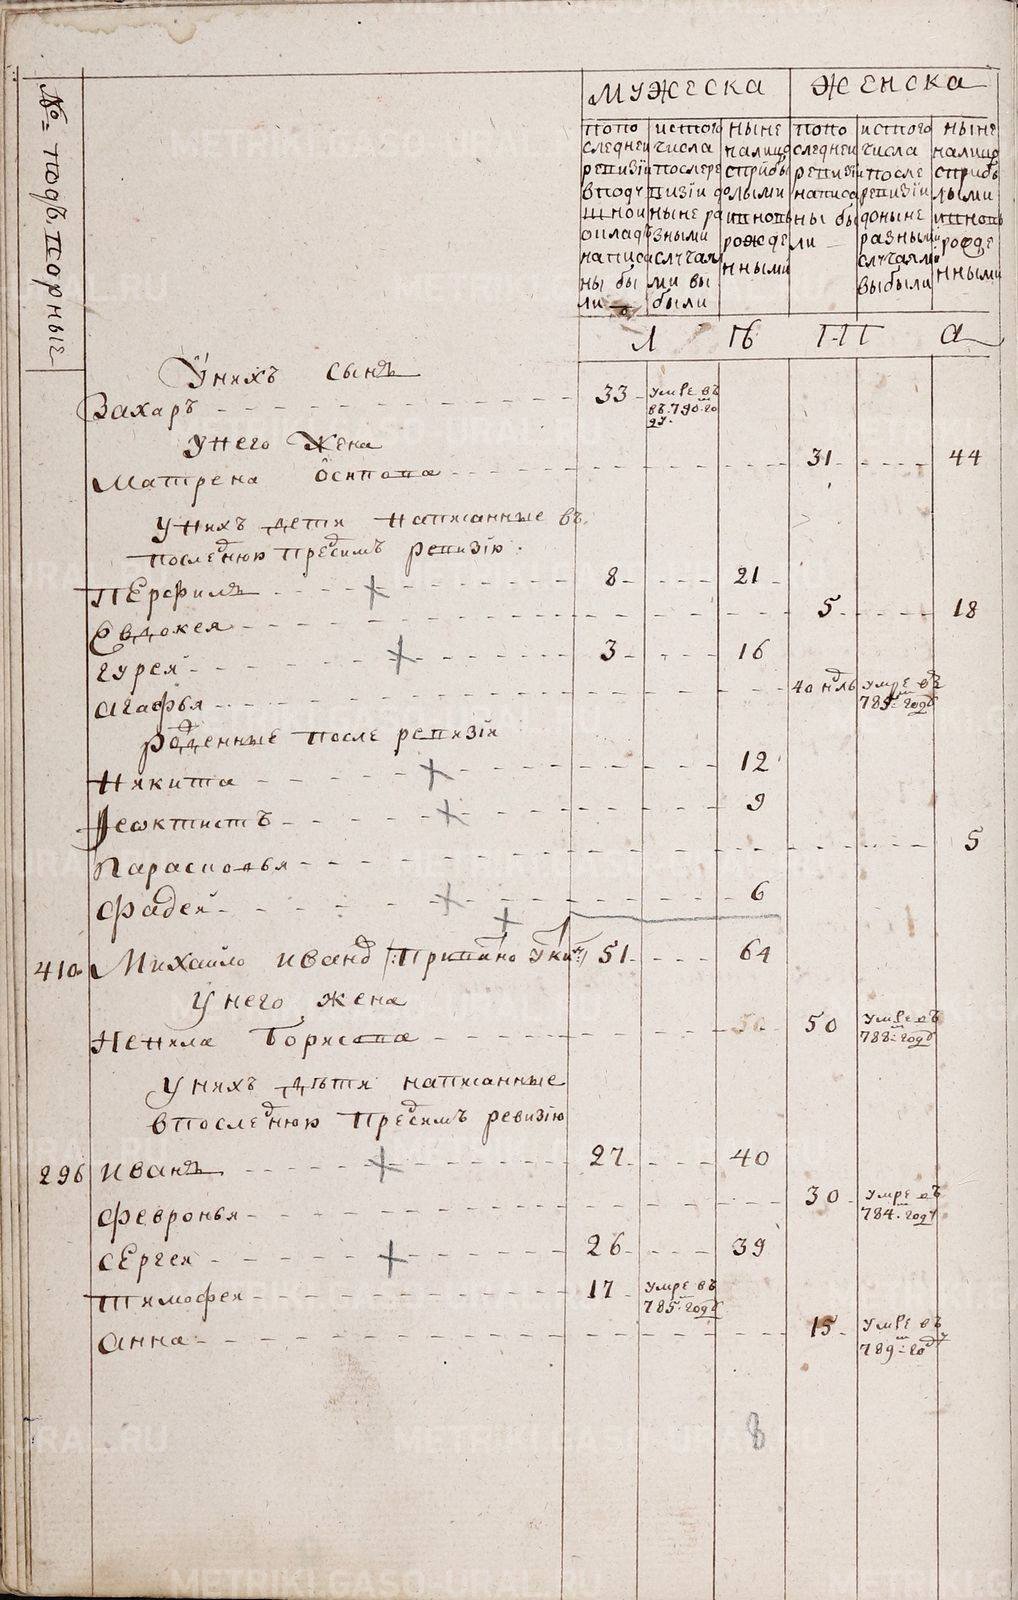 № подворные
Мужеска Женска
попо
следней
ревизіи
вподу
шной
окладъ
написа
ны бы
ли
истого
числа
послере
визіи до
ныне ра
зными
случаям
ми вы
были
ныне
налицо
сприбы
лыми
ивновь
рожде
нными
попо
следней
ревизіи
написа
ны бы
ли
истого
числа
после
ревизіи
доныне
разными
случаями
выбыли
ныне
налицо
сприбы
лыми
ивновь
рожде
нными
Л ѣ т а
У нихъ сынъ
Захаръ 33 умре въ
въ 790 го
ду.
У него жена
Матрена Осипова 31 44
У нихъ дети написанные въ
последнюю предсимъ ревизію.
Перфилъ 8 21
Евдокея 5 18
Гурея 3 16
Агафья 40 ндль умре въ
785 годѣ
Рожденные после ревизіи
Никита 12
Феѡктистъ 9
Парасковья 5
Фадей 6
410 Михайло Иванд 51 64
У него жена
Ненила Борисова 50 50 умре въ
788 годѣ
У нихъ дѣти написанные
впоследнюю пред симъ ревизію
296 Иванъ 27 40
Февронья 30 умре въ
784 году
Сергея 26 39
Тимофея 17 умре въ
785 годѣ
Анна 15 умре въ
789 году
8
METRIKI.GASO-URAL.RU